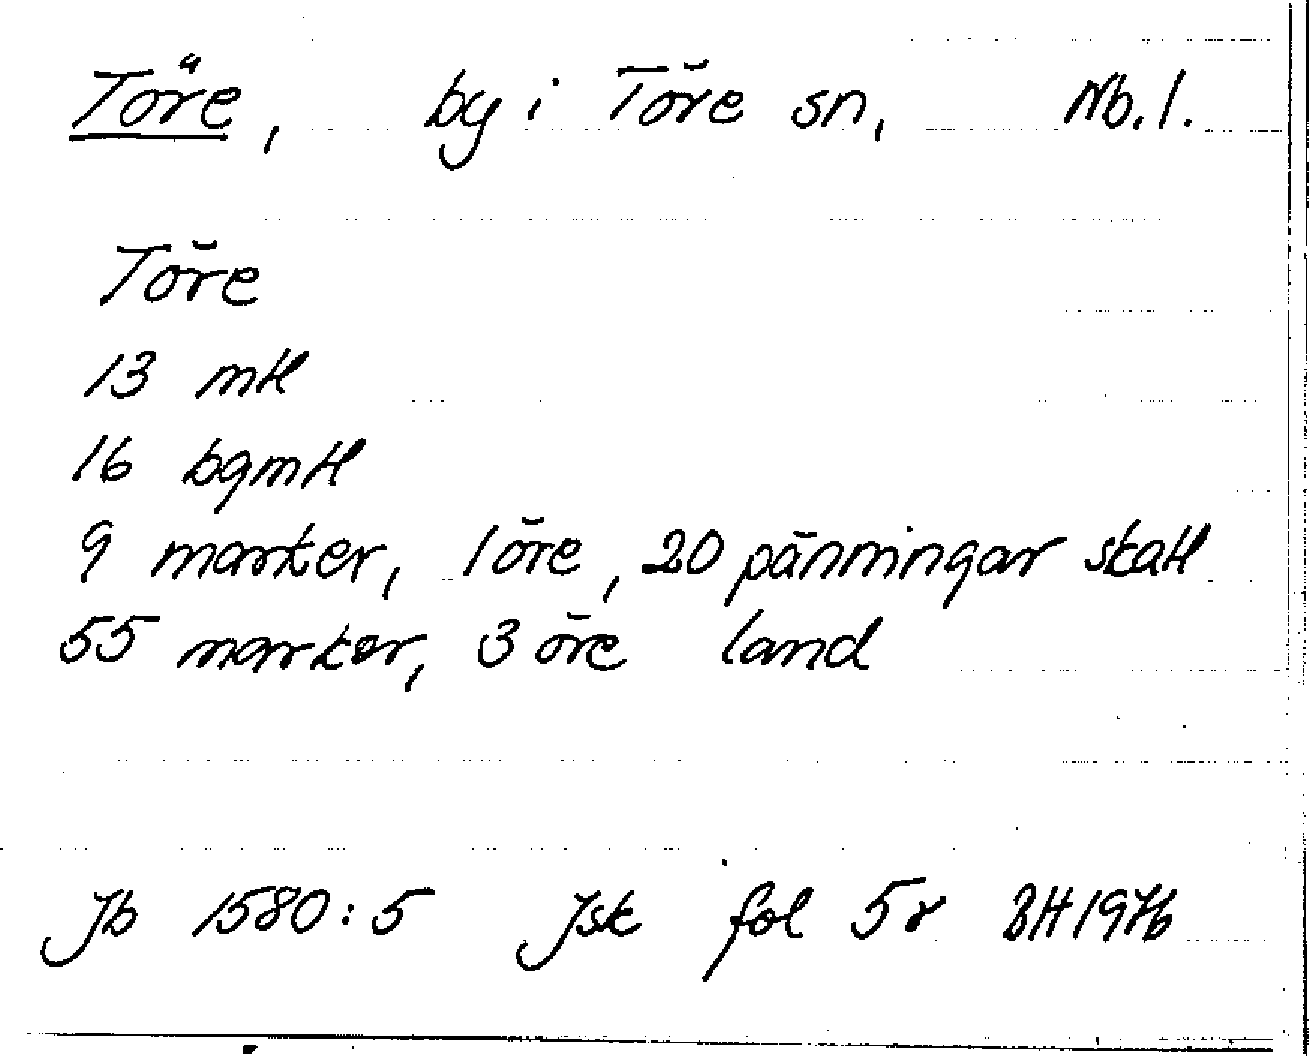 Töre, by i Töre sn, Nb.l.
Töre
13 mtl
16 bgmtl
9 marker, 1 öre, 20 pänningar skatt
55 marker, 3 öre land
Jb 1580:5 Jsk fol 5r BH 1976